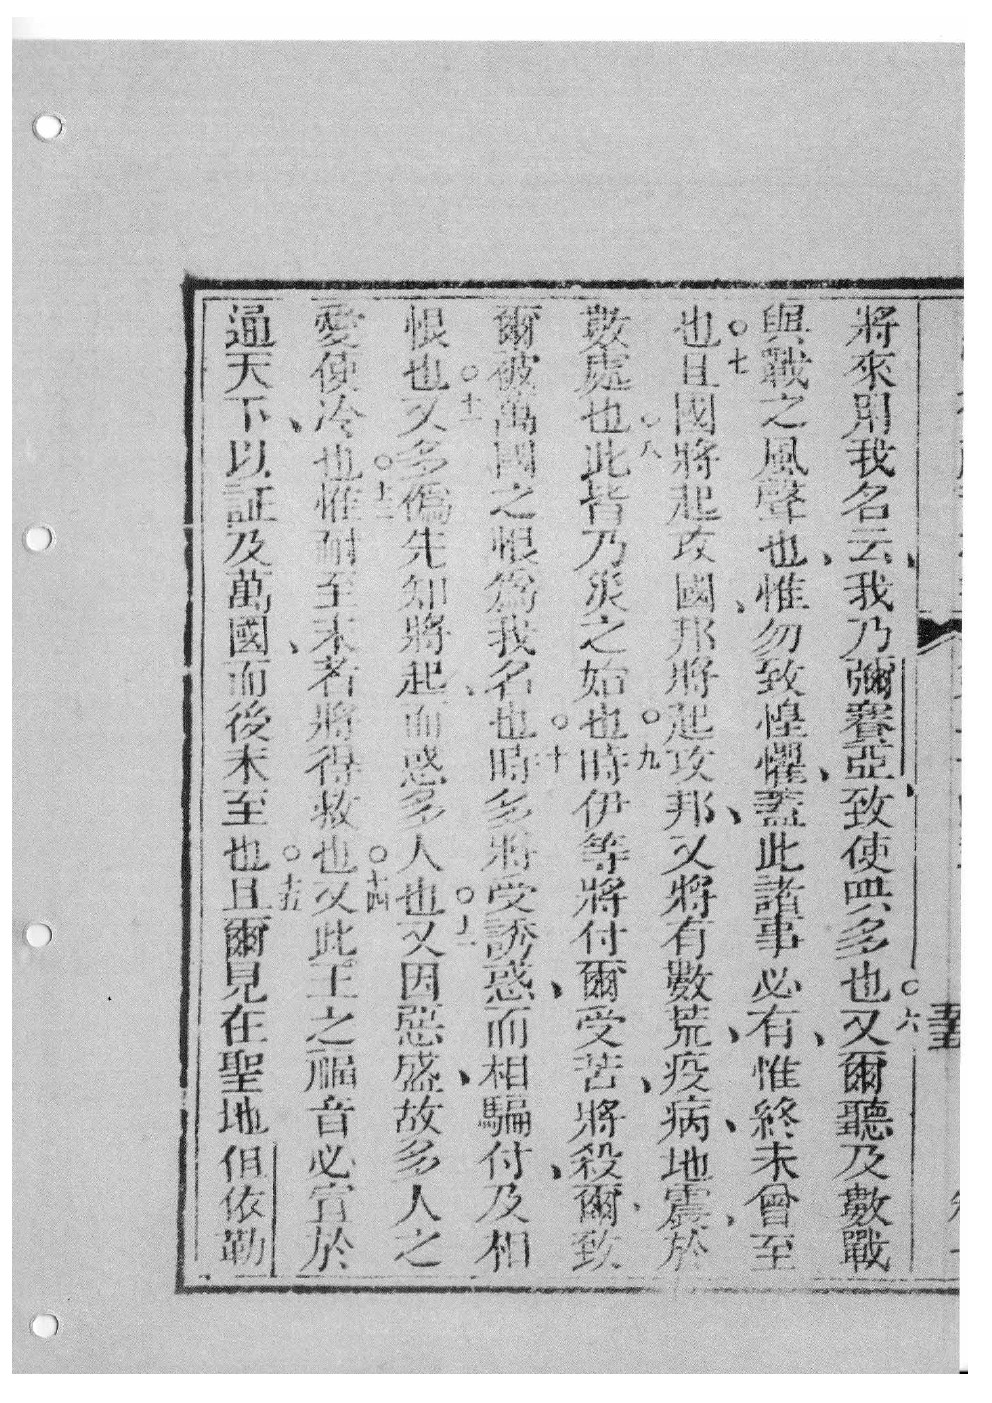 將來用我名云、我乃彌賽亞、致使哄多也○六又爾聽及數戰
與戰之風聲也、惟勿致惶懼、蓋此諸事必有、惟終未曾至
也○七且國將起攻國、邦將起攻邦、又將有數荒、疫病、地震、於
數處也○八此皆乃災之始也○九時伊等將付爾受苦、將殺爾、致
爾被萬國之恨為我名也○十時多將受誘惑、而相騙付、及相
恨也○十一又多僞先知將起、而惑多人也○十二又因惡盛、故多人之
愛使冷也○十三惟耐至末者將得救也○十四又此王之福音必宣於
逼天下、以証及萬國、而後末至也○十五且爾見在聖地但依勒